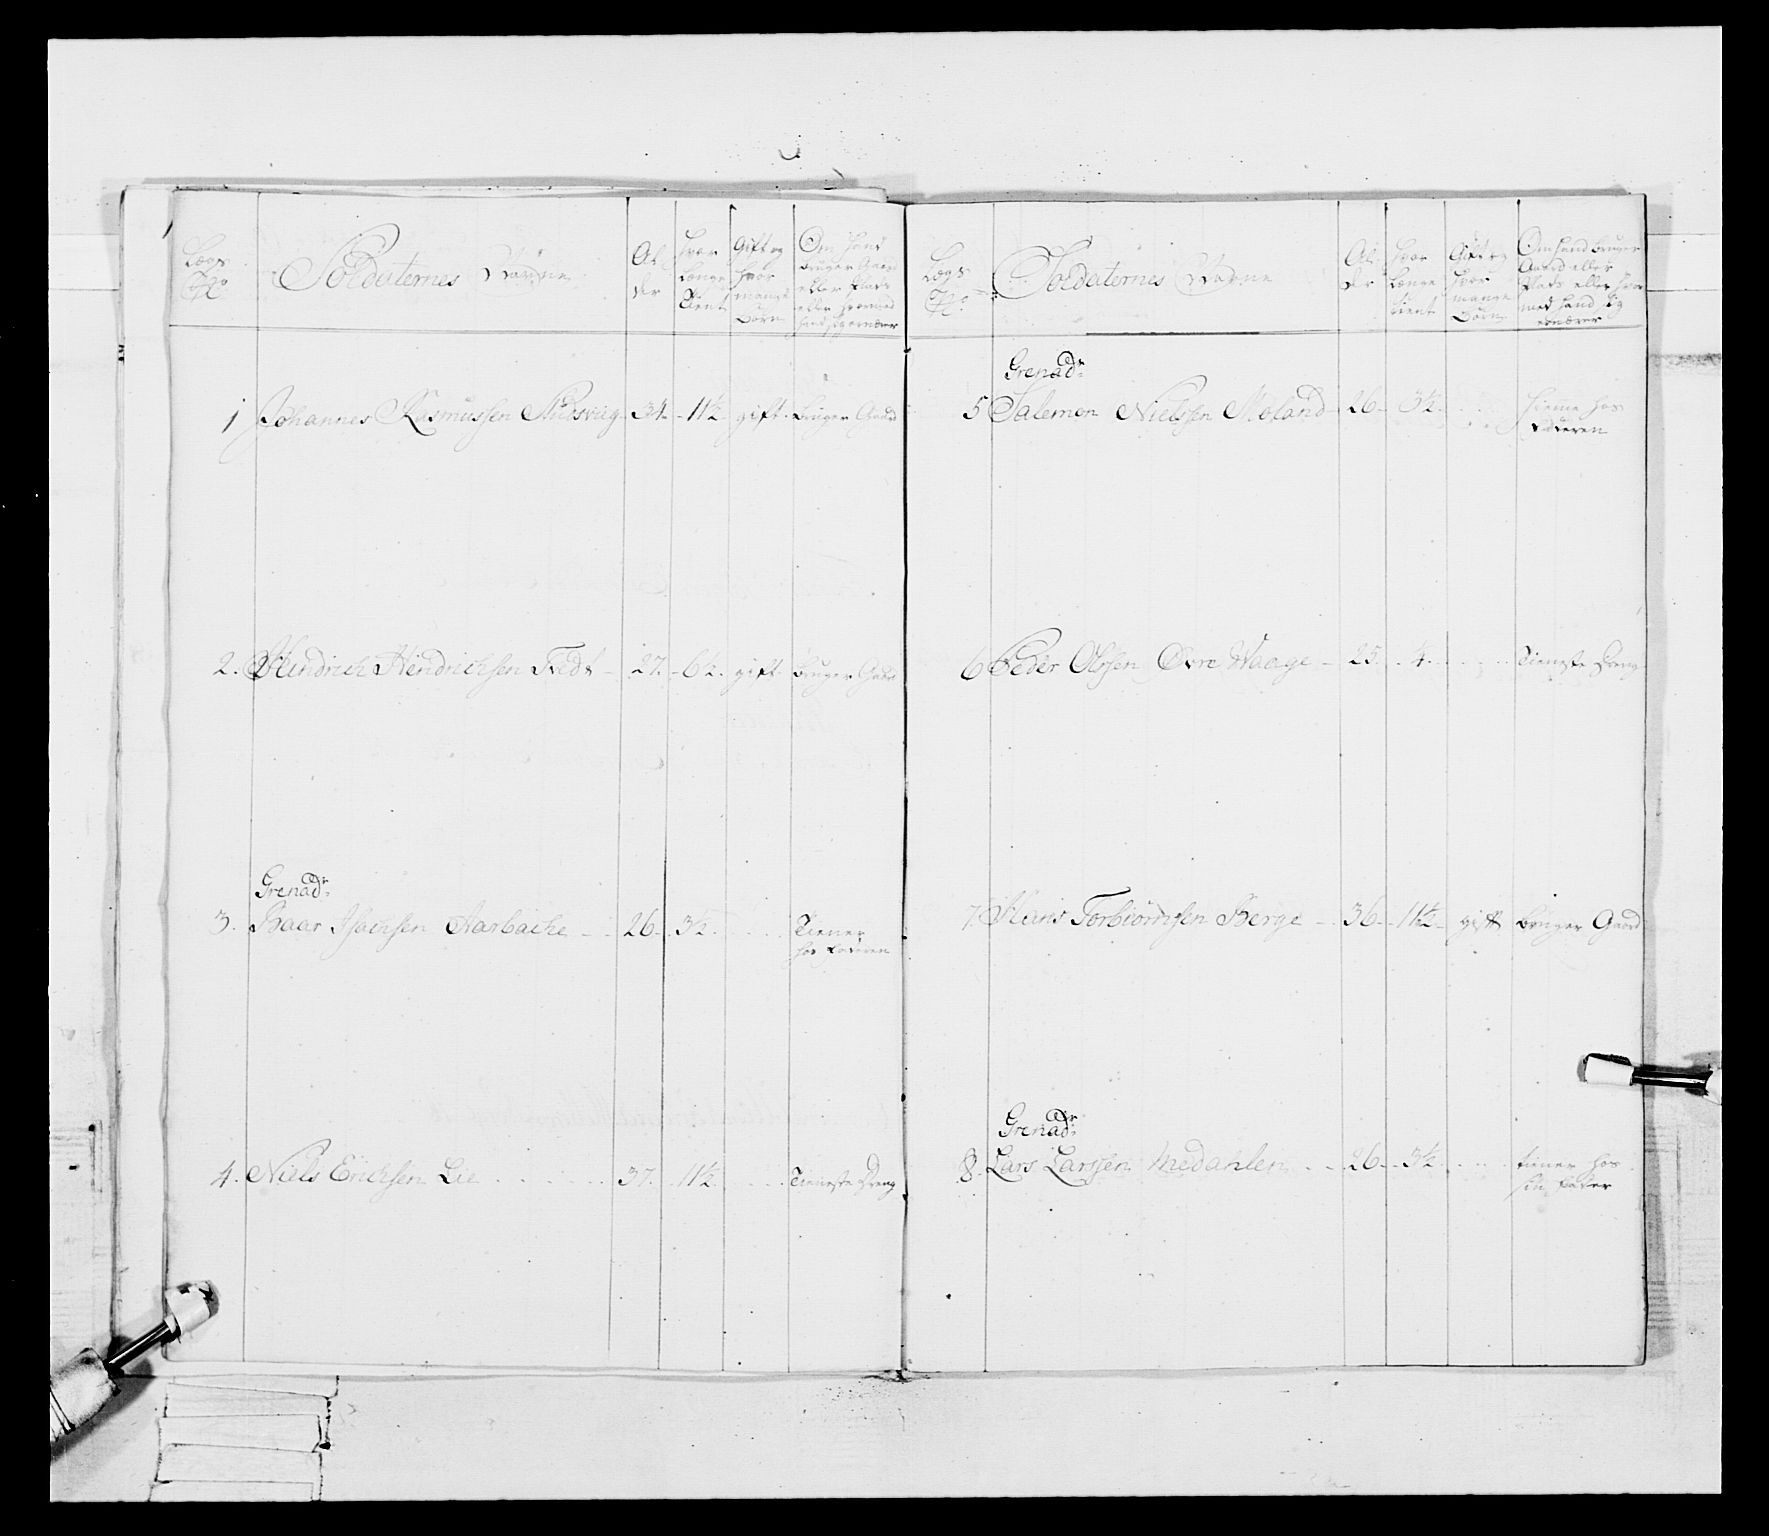 Lægs No
Soldaternes Navne
Al der
Hvor længe Tient
Gift og hvor mange Børn
Om hand bruger Gaard eller Plads eller hvormed hand sig ernærer
1 Johannes Rasmussen - 34 - 11½ gift - bruger Gaard
2. Hindrich Hendrichsen Tvedt - 27. - 6½. gift. bruger Gaard
Grenadr
3. Baar Isachsen Aarbache - - 26 - 3½ Tiener
hos Faderen
4. Niels Erichsen Lie 37. 11½ Tieneste Dreng
Lægs No
Soldaternes Navne
Al der
Hvor længe tient
Gift og hvor mange Børn
Om hand bruger Gaard eller Plads eller hvor med hand sig ernærer
Grenadr
5 Salemon Nielssen Moland - 26 - 3½ hieme hos
Faderen
6 Peder Olssen Øvre Waage - 25. - 4. Tieneste Dreng
7. Hans Torbiørnsen Berge - 36 - 11½ - gift bruger Gaard
Grenadr
8. Lars Larssen Medahlen - - 26 - 3½ tiener hos
sin Fader